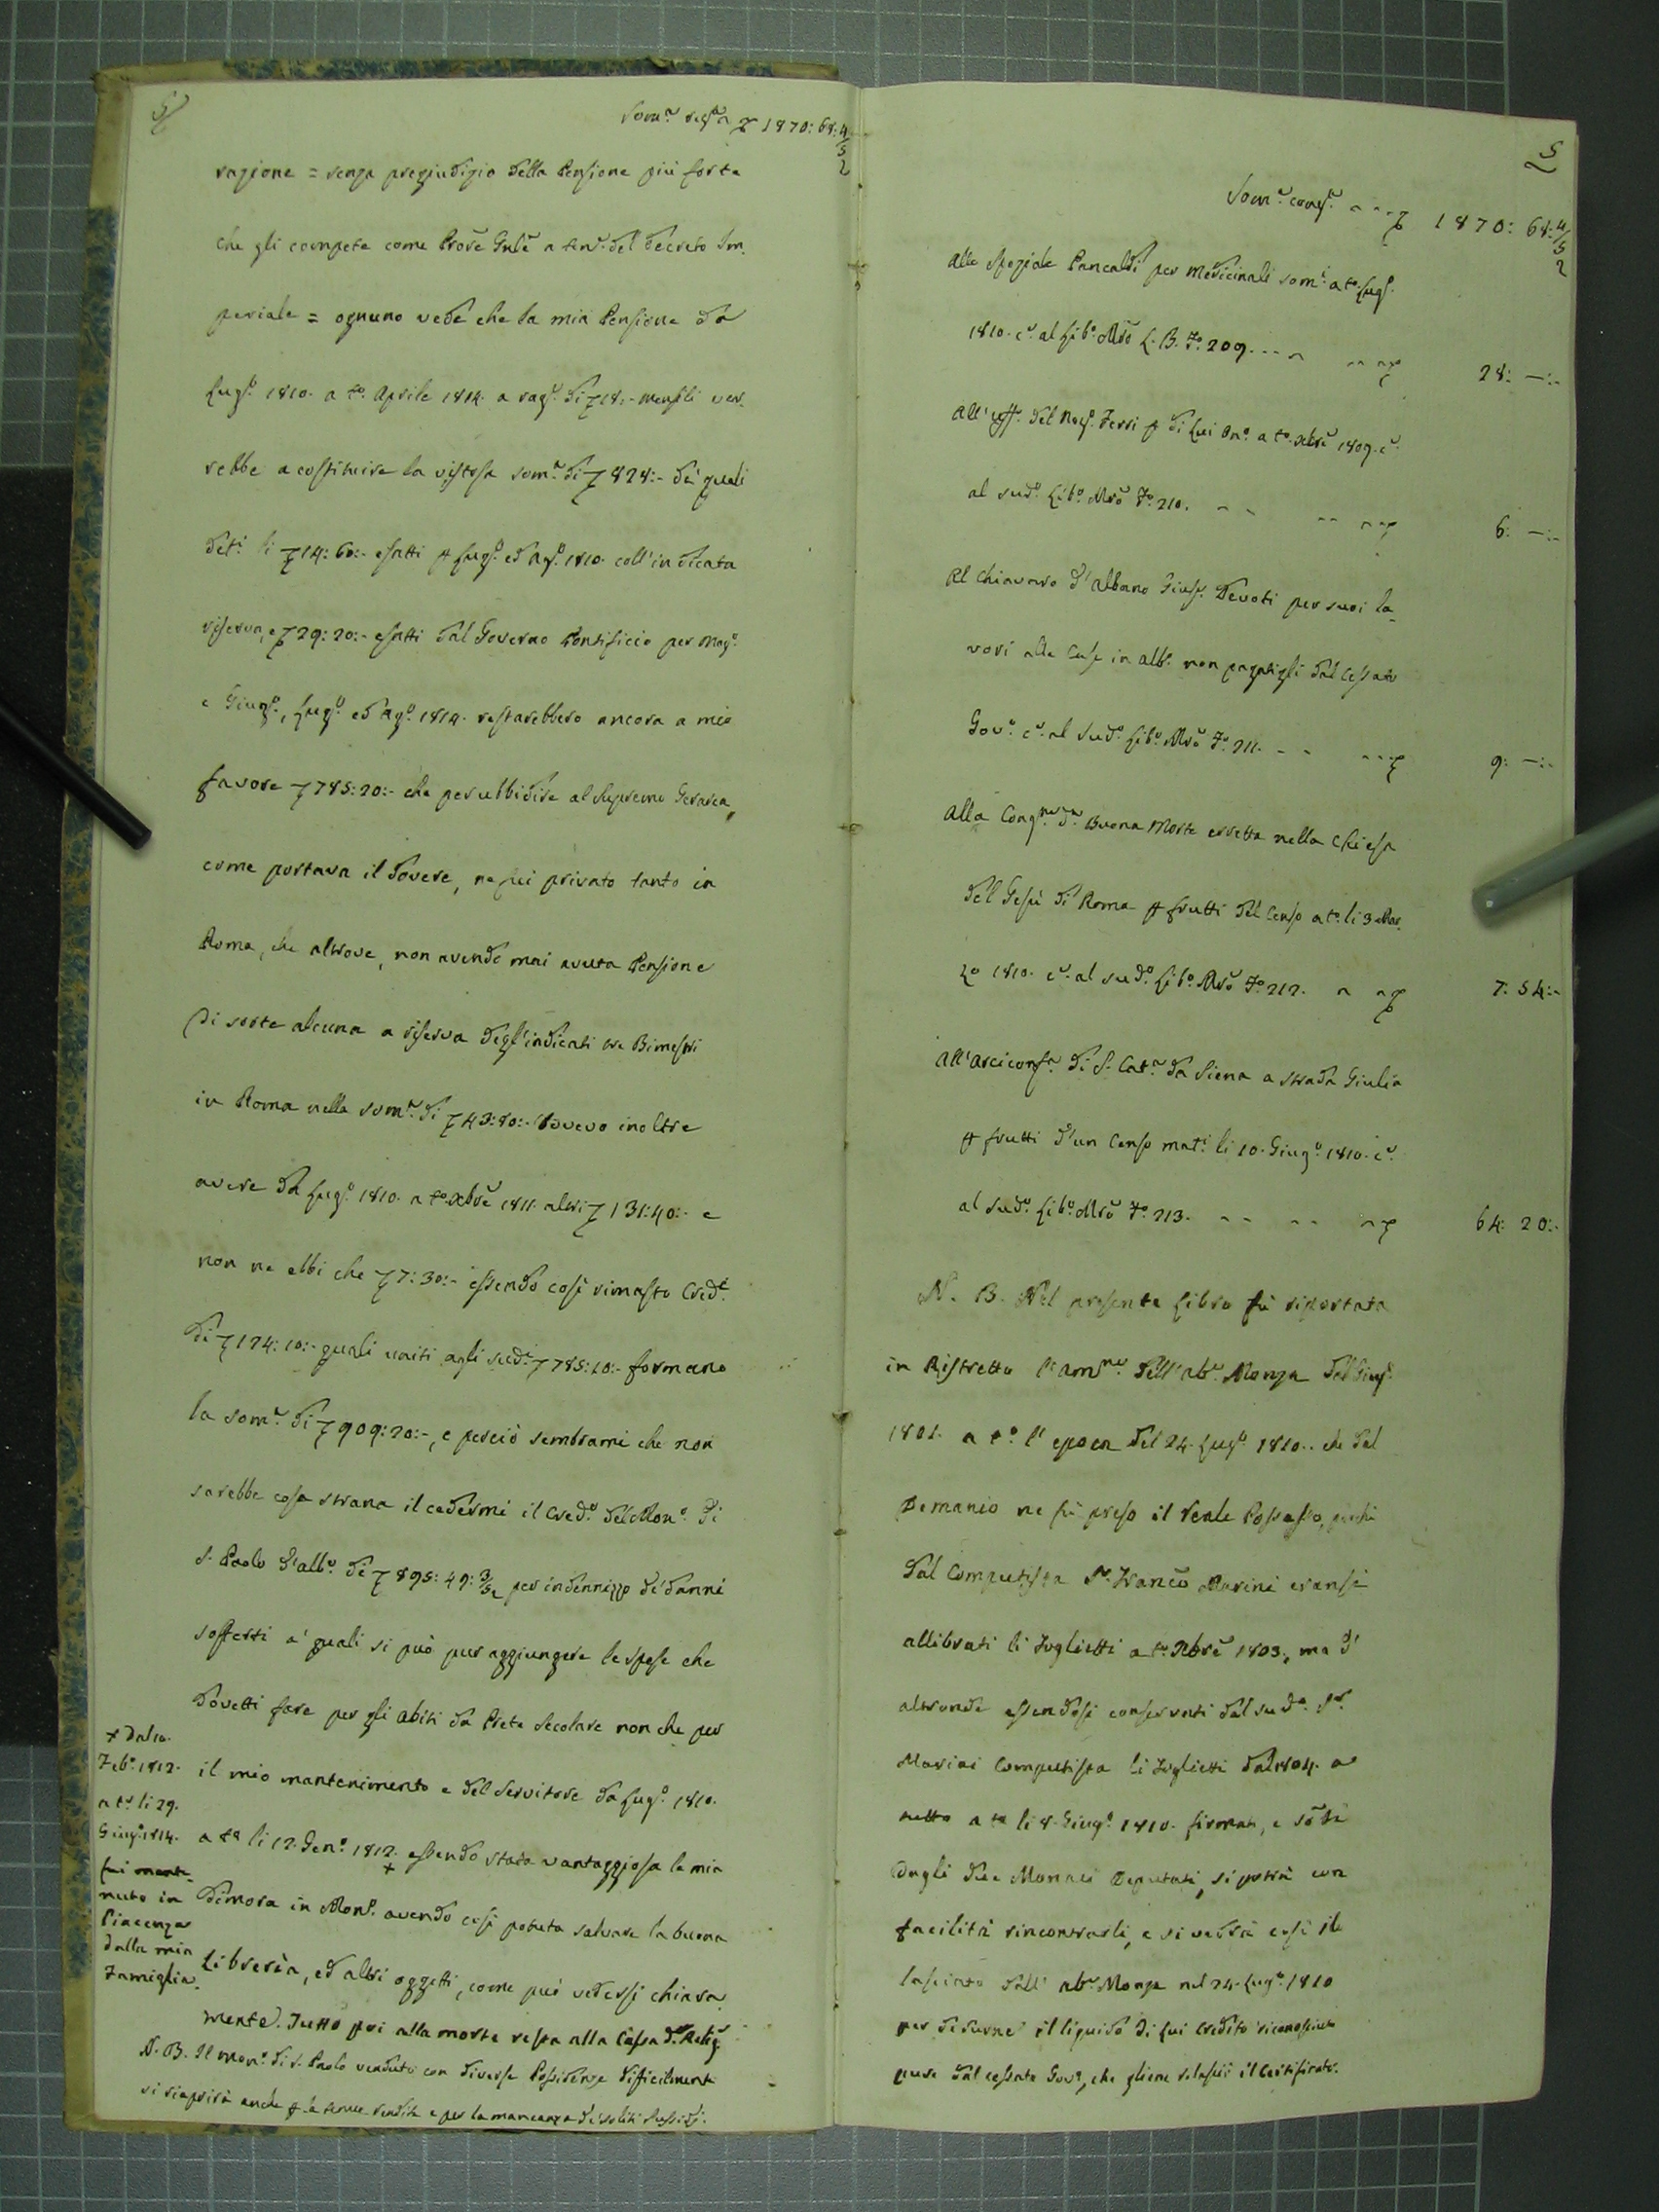 5
Som.a seg.a 1870: 68: 4/5 2
ragione = senza pregiudizio della Pensione più forte
che gli compete come Prore Gnle a ten.e del decreto Im-
periale = ognuno vede che la mia Pensione da
Lug.o 1810. a t.o Aprile 1814. a rag.e di 18:- mensili ver-
rebbe a costituire la vistosa som.a di 828:- de' quali
det.i li 14: 60:- esatti p Lug.o ed Ag.o 1810. coll'indicata
riserva, e 29: 20:- esatti dal Governo Pontificio per Mag.o
e Giug.o, Lug.o ed Ag.o 1814. restarebbero ancora a mio
favore 785: 20:- che per ubbidire al Supremo Gerarca,
come portava il dovere, ne fui privato tanto in
Roma, che altrove, non avendo mai avuta Pensione
di sorte alcuna a riserva degl'indicati tre Bimestri
in Roma nella som.a di 43: 80:- Dovevo inoltre
avere da Lug.o 1810. a t.o Xbre 1811. altri 131: 40:- e
non ne ebbi che 7: 30:- essendo così rimasto Cred.e
di 124: 10:- quali uniti agli sud.i 785: 10:- formano
la som.a di 909: 20:-, e perciò sembrami che non
sarebbe cosa strana il cedermi il Cred.o del Mon.o di
S. Paolo d'Alb.o di 895: 49: 3/5 per indennizzo de' danni
sofferti a' quali si può pur aggiungere le spese che
dovetti fare per gli abiti da Prete Secolare non che per
il mio mantenimento e del Servitore da Lug.o 1810.
a t.o li 12. Gen.o 1812. + essendo stata vantaggiosa la mia
dimora in Mon.o avendo così potuta salvare la buona
Libreria, ed altri oggetti, come può vedersi chiara-
mente. Tutto poi alla morte resta alla Cassa d. Relig.
N. B. Il Mon.o di S. Paolo venduto con diverse Possidenze difficilmente
si riaprirà anche p le tenue rendite e per la mancanza de' soliti Sussidj.
+ Dal 12.
Feb.o 1812.
a t.o li 29.
Giug.o 1814.
fui mante-
nuto in
Piacenza
dalla mia
Famiglia.
5
Som.a conseg.a 1870: 68: 4/5 2
Allo Speziale Pancaldi per Medicinali som.i a t.o Lug.o
1810. c.e al Lib.o Mro L. B. F.o 209. 28: —:-
All'uff. del Neg. Ferri p di Lui On.o a t.o Xbre 1809. c.e
al sud.o Lib.o Mro F.o 210. 6: —:-
Al Chiavaro d'Albano Gius.e Devoti per suoi la-
vori alle Case in Alb.o non pagatigli dal Cessato
Gov.o c.e al Sud.o Lib.o Mro F.o 211. 9: —:-
Alla Cong.ne d.a Buona Morte eretta nella Chiesa
del Gesù di Roma p frutti del Censo a t.o li 3 Mar-
zo 1810. c.e al sud.o Lib.o Mro F.o 212. 7: 54:-
All'Arciconf.a di S. Cat.a da Siena a strada Giulia
p frutti d'un Censo mat.i li 10. Giug.o 1810. c.e
al Sud.o Lib.o Mro F.o 213. 64: 20:-
N. B. Nel presente Libro fù riportata
in Ristretto l'am.ne dell'ab.e Monza dal Giug.o
1801. a t.o l'epoca del 24. Lug.o 1810.. che dal
Demanio ne fù preso il reale Possesso, perchè
dal Computista S.r Franco Marini eransi
allibrati li Foglietti a t.o Xbre 1803., ma d'
altronde essendosi conservati dal sud.o S.r
Marini Computista li Foglietti dal 1804. a
tutto a t.o li 8. Giug.o 1810. firmati, e
dagli due Monaci Deputati, si potrà con
facilità rincontrarli, e si vedrà così il
lasciato dall'ab.e Monza nel 24. Lug.o 1810
per dedurne il liquido di Lui Credito riconosciuto
pure dal cessato Gov.o, che gliene rilasciò il Certificato.